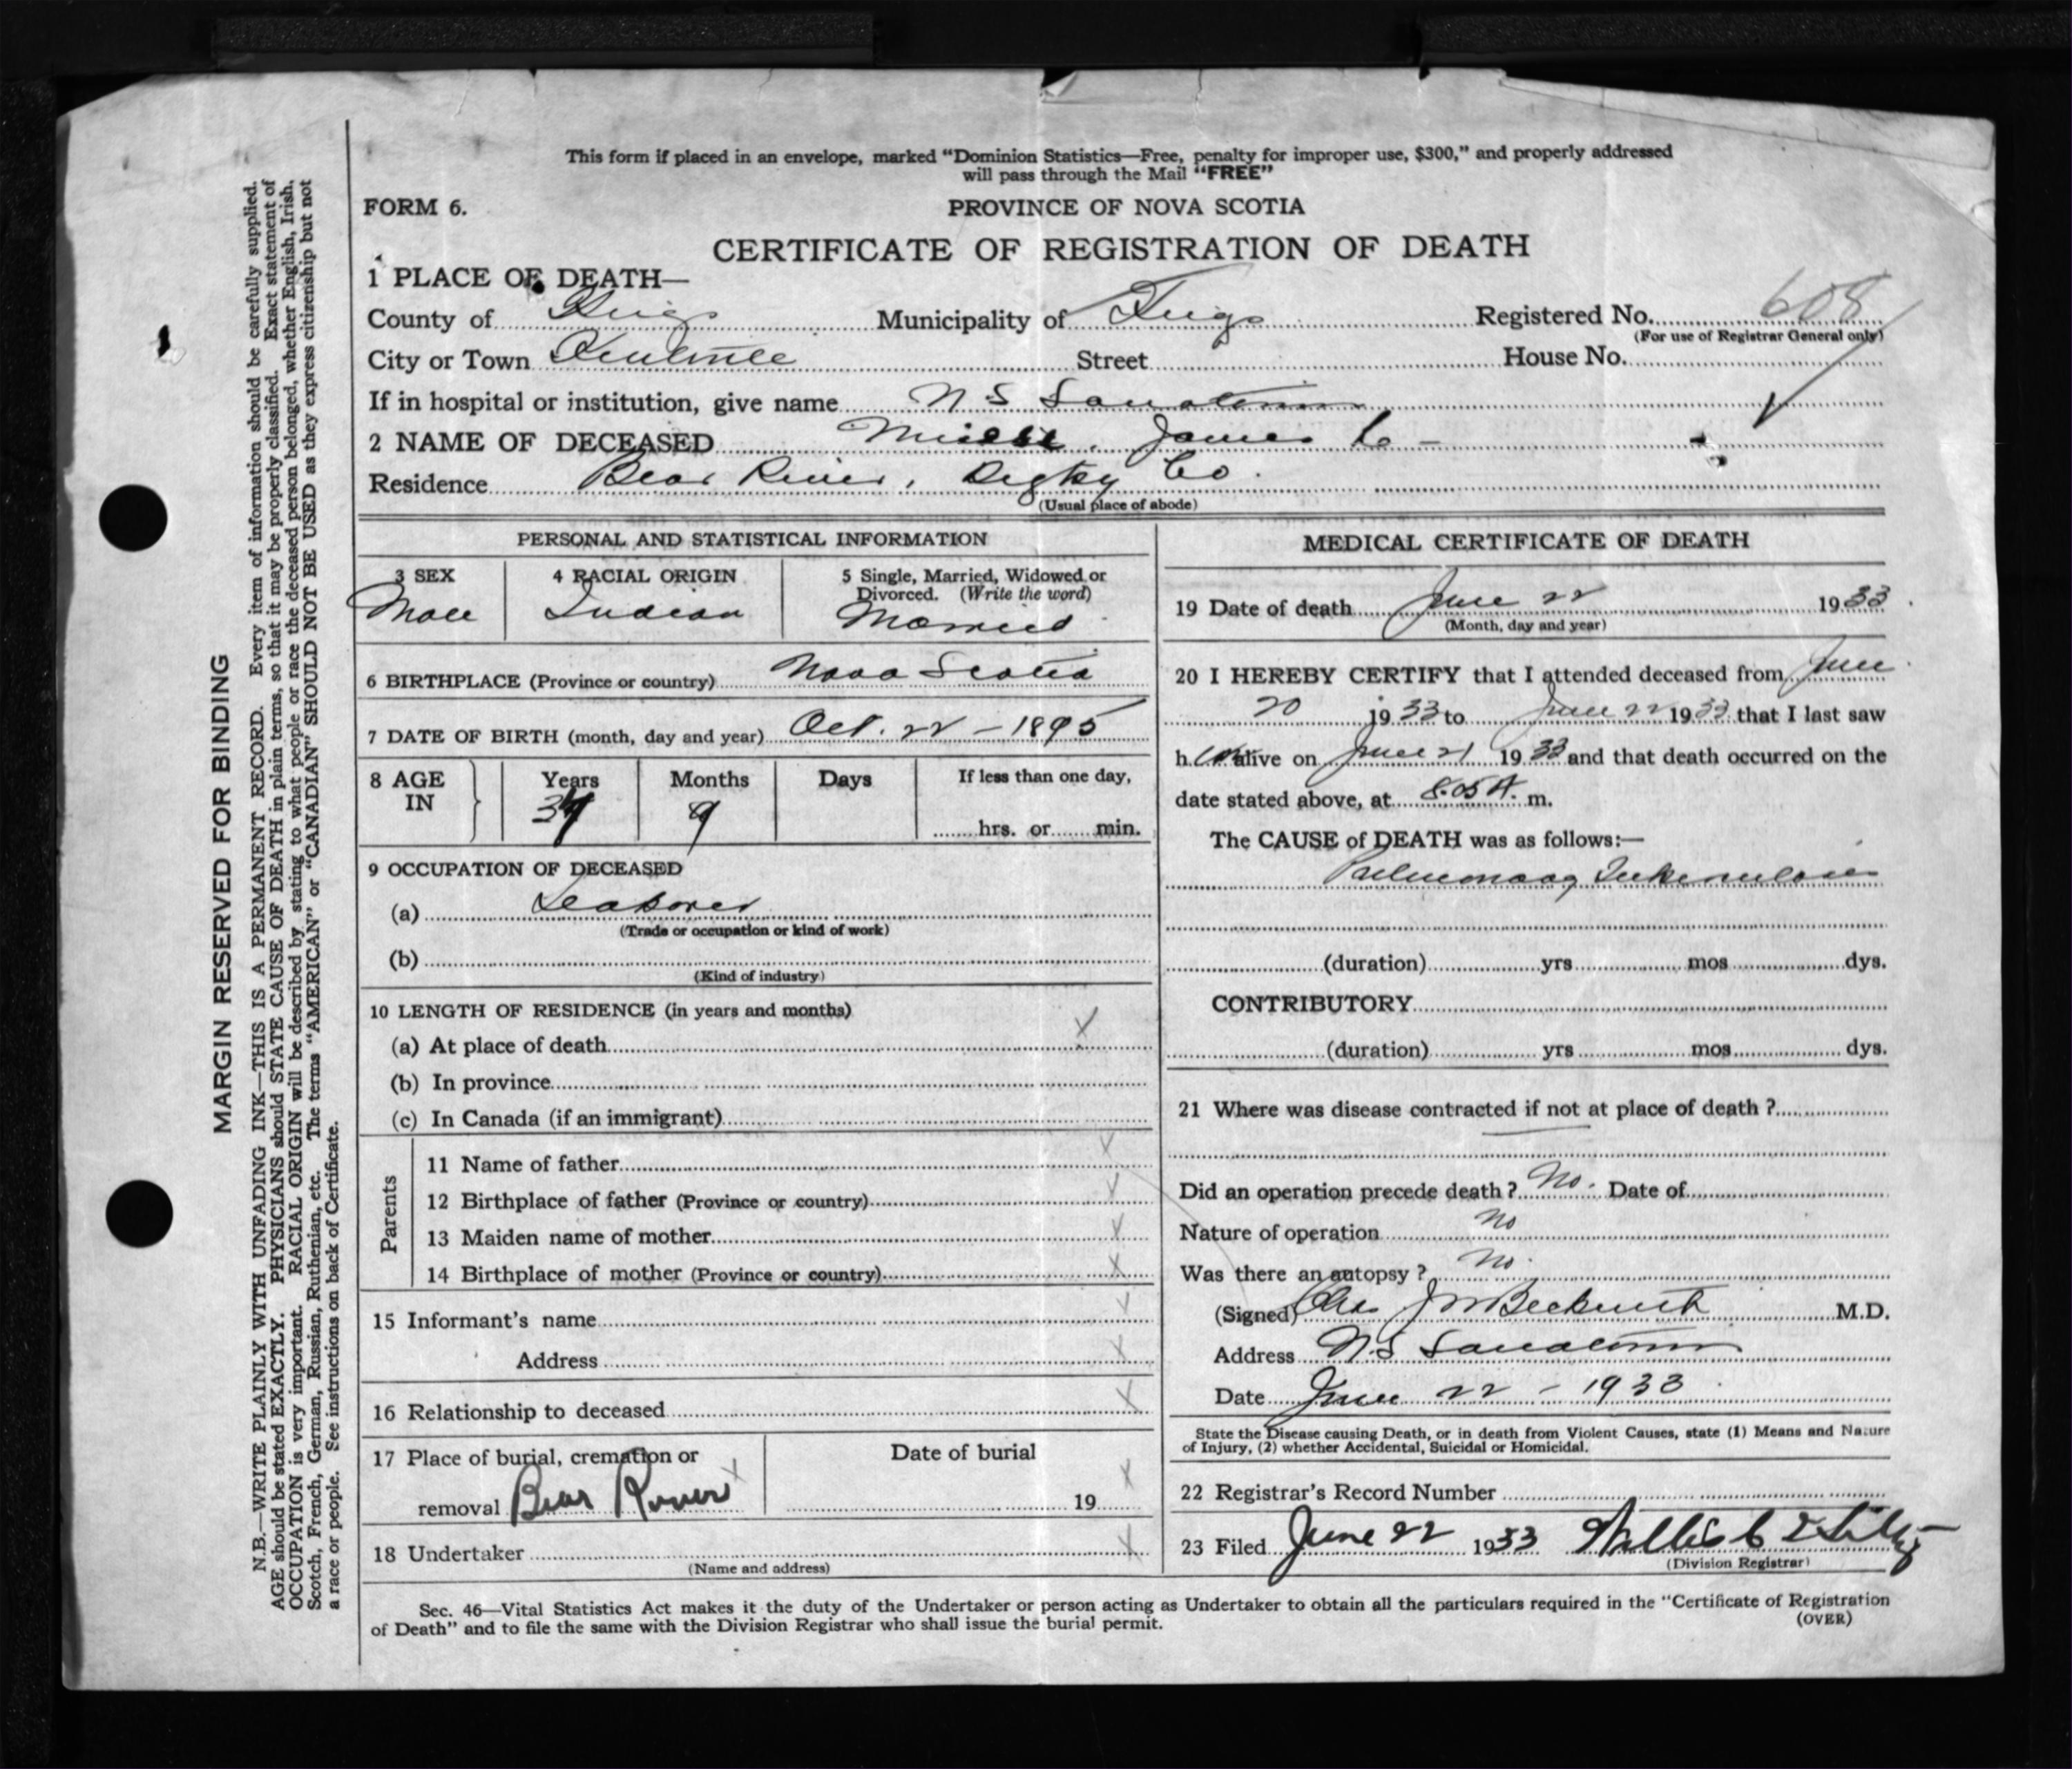 This form if placed in an envelope, marked "Dominion Statistics—Free, penalty for improper use, $300," and properly addressed
will pass through the Mail "FREE"
FORM 6.
PROVINCE OF NOVA SCOTIA
CERTIFICATE OF REGISTRATION OF DEATH
1 PLACE OF DEATH—
County of Kings Municipality of Kings Registered No. 608
(For use of Registrar General only)
City or Town Kentville Street House No.
If in hospital or institution, give name N S Sanatorium
2 NAME OF DECEASED James
Residence Bear River, Digby Co.
(Usual place of abode)
PERSONAL AND STATISTICAL INFORMATION
3 SEX
Male
4 RACIAL ORIGIN
Indian
5 Single, Married, Widowed or
Divorced. (Write the word)
Married
6 BIRTHPLACE (Province or country) Nova Scotia
7 DATE OF BIRTH (month, day and year) Oct. 22 - 1895
8 AGE
IN
Years
Months
Days
If less than one day,
hrs. or min.
9 OCCUPATION OF DECEASED
(a) Leaborer
(Trade or occupation or kind of work)
(b)
(Kind of industry)
10 LENGTH OF RESIDENCE (in years and months)
(a) At place of death X
(b) In province
(c) In Canada (if an immigrant)
Parents
11 Name of father X
12 Birthplace of father (Province or country) X
13 Maiden name of mother X
14 Birthplace of mother (Province or country) X
15 Informant's name X
Address X
16 Relationship to deceased X
17 Place of burial, cremation or
removal Bear River X
Date of burial
19 X
18 Undertaker X
(Name and address)
MEDICAL CERTIFICATE OF DEATH
19 Date of death June 22 1933
(Month, day and year)
20 I HEREBY CERTIFY that I attended deceased from June
20 1933 to June 22 1933 that I last saw
h im alive on June 21 1933 and that death occurred on the
date stated above, at 8.05 A. m.
The CAUSE of DEATH was as follows:—
Pulmonary Tuberculosis
(duration) yrs mos dys.
CONTRIBUTORY
(duration) yrs mos dys.
21 Where was disease contracted if not at place of death ?
Did an operation precede death ? No. Date of
Nature of operation No
Was there an autopsy ? No.
(Signed) M.D.
Address N.S Sanatorium
Date June 22 - 1933
State the Disease causing Death, or in death from Violent Causes, state (1) Means and Nature
of Injury, (2) whether Accidental, Suicidal or Homicidal.
22 Registrar's Record Number
23 Filed June 22 1933
(Division Registrar)
Sec. 46—Vital Statistics Act makes it the duty of the Undertaker or person acting as Undertaker to obtain all the particulars required in the "Certificate of Registration
of Death" and to file the same with the Division Registrar who shall issue the burial permit.
(OVER)
MARGIN RESERVED FOR BINDING
N.B.—WRITE PLAINLY WITH UNFADING INK—THIS IS A PERMANENT RECORD. Every item of information should be carefully supplied.
AGE should be stated EXACTLY. PHYSICIANS should STATE CAUSE OF DEATH in plain terms, so that it may be properly classified. Exact statement of
OCCUPATION is very important. RACIAL ORIGIN will be described by stating to what people or race the deceased person belonged, whether English, Irish,
Scotch, French, German, Russian, Ruthenian, etc. The terms "AMERICAN" or "CANADIAN" SHOULD NOT BE USED as they express citizenship but not
a race or people. See instructions on back of Certificate.